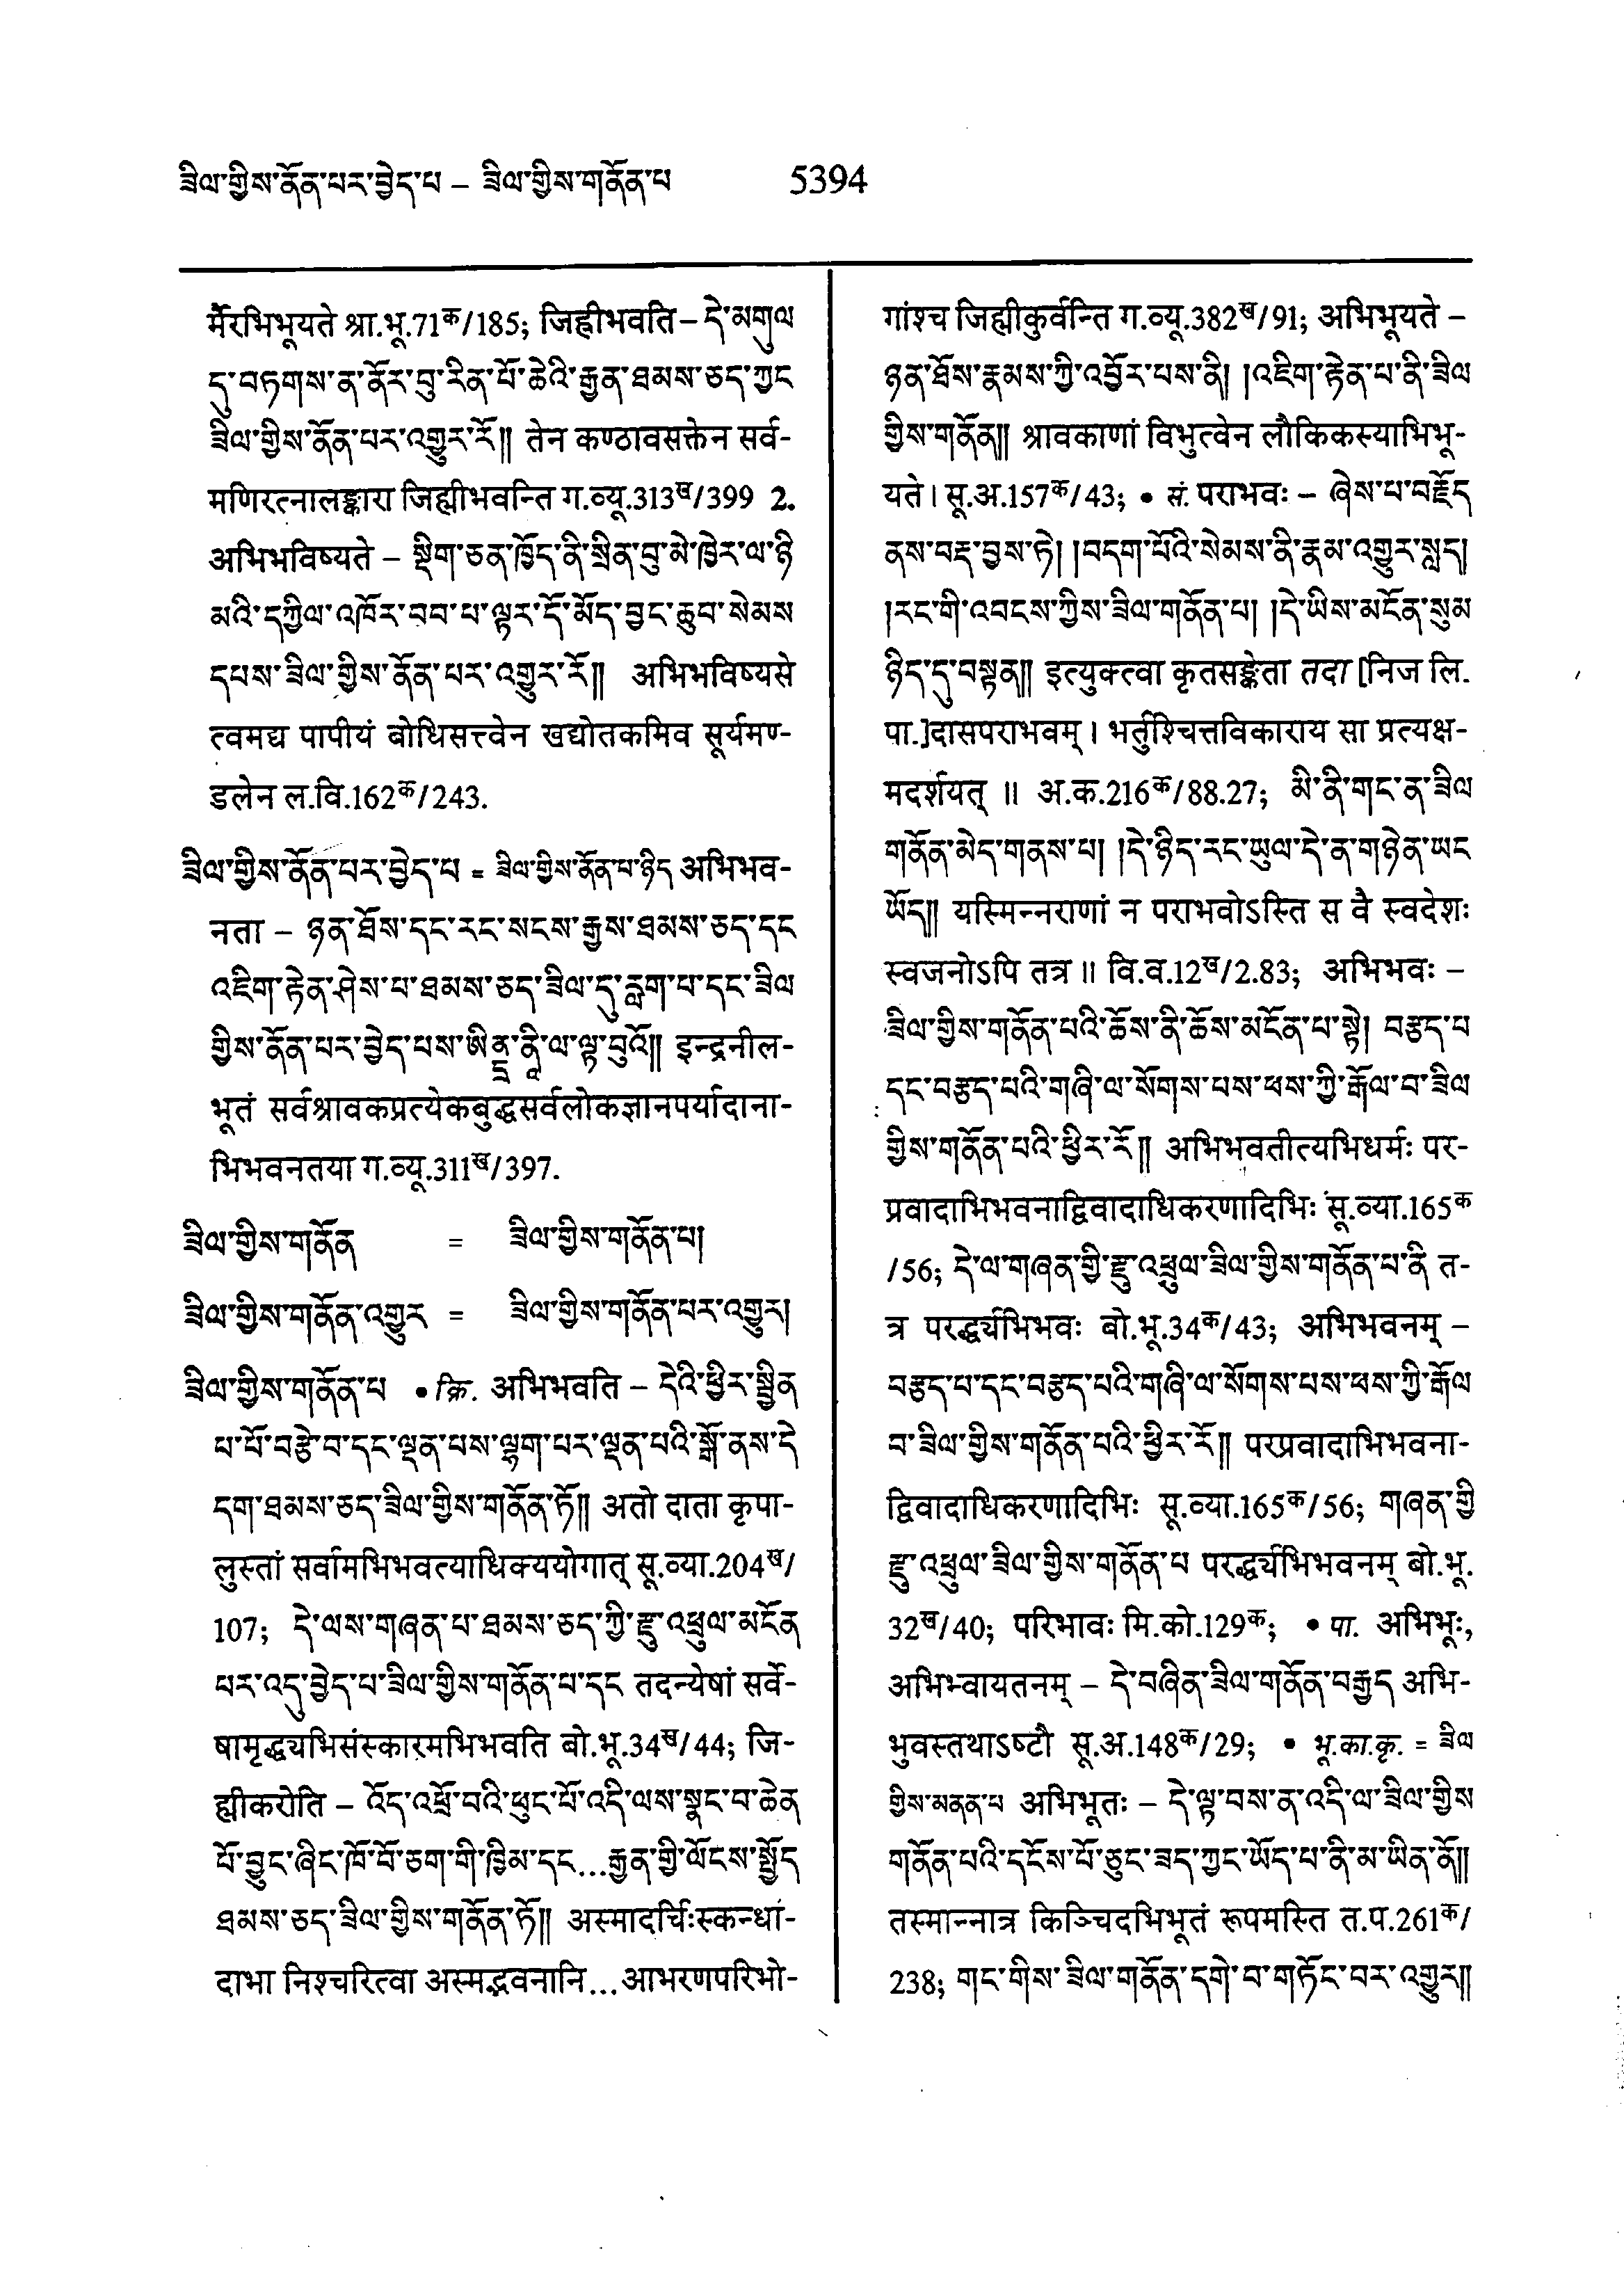 ཟིལ་གྱིས་ནོན་པར་བྱེད་པ – ཟིལ་གྱིས་གནོན་པ 5394
र्मैरभिभूयते श्रा.भू.71क/185; जिह्मीभवति – དེ་མགུལ
དུ་བཏགས་ན་ནོར་བུ་རིན་པོ་ཆེའི་རྒྱན་ཐམས་ཅད་ཀྱང
ཟིལ་གྱིས་ནོན་པར་འགྱུར་རོ༎ तेन कण्ठावसक्तेन सर्व-
मणिरत्नालङ्कारा जिह्मीभवन्ति ग.व्यू.313ख/399 2.
अभिभविष्यते – སྡིག་ཅན་ཁྱོད་ནི་སྲིན་བུ་མེ་ཁྱེར་ལ་ཉི
མའི་དཀྱིལ་འཁོར་བབ་པ་ལྟར་དོ་མོད་བྱང་ཆུབ་སེམས
དཔས་ཟིལ་གྱིས་ནོན་པར་འགྱུར་རོ༎ अभिभविष्यसे
त्वमद्य पापीयं बोधिसत्त्वेन खद्योतकमिव सूर्यमण-
डलेन ल.वि.162क/243.
ཟིལ་གྱིས་ནོན་པར་བྱེད་པ = ཟིལ་གྱིས་ནོན་པ་ཉིད अभिभव-
नता – ཉན་ཐོས་དང་རང་སངས་རྒྱས་ཐམས་ཅད་དང
འཇིག་རྟེན་ཤེས་པ་ཐམས་ཅད་ཟིལ་དུ་རླག་པ་དང་ཟིལ
གྱིས་ནོན་པར་བྱེད་པས་ཨིནྡྲ་ནཱི་ལ་ལྟ་བུའོ༎ इन्द्रनील-
भूतं सर्वश्रावकप्रत्येकबुद्धसर्वलोकज्ञानपर्यादाना-
भिभवनतया ग.व्यू.311ख/397.
ཟིལ་གྱིས་གནོན = ཟིལ་གྱིས་གནོན་པ།
ཟིལ་གྱིས་གནོན་འགྱུར = ཟིལ་གྱིས་གནོན་པར་འགྱུར།
ཟིལ་གྱིས་གནོན་པ • क्रि. अभिभवति – དེའི་ཕྱིར་སྦྱིན
པ་པོ་བརྩེ་བ་དང་ལྡན་པས་ལྷག་པར་ལྡན་པའི་སྒོ་ནས་དེ
དག་ཐམས་ཅད་ཟིལ་གྱིས་གནོན་ཏོ༎ अतो दाता कृपा-
लुस्तां सर्वामभिभवत्याधिक्ययोगात् सू.व्या.204ख/
107; དེ་ལས་གཞན་པ་ཐམས་ཅད་ཀྱི་རྫུ་འཕྲུལ་མངོན
པར་འདུ་བྱེད་པ་ཟིལ་གྱིས་གནོན་པ་དང तदन्येषां सर्वे-
षामृद्ध्यभिसंस्कारमभिभवति बो.भू.34ख/44; जि-
ह्मीकरोति – འོད་འཕྲོ་བའི་ཕུང་པོ་འདི་ལས་སྣང་བ་ཆེན
པོ་བྱུང་ཞིང་ཁོ་བོ་ཅག་གི་ཁྱིམ་དང...རྒྱན་གྱི་ལོངས་སྤྱོད
ཐམས་ཅད་ཟིལ་གྱིས་གནོན་ཏོ༎ अस्मादर्चिःस्कन्धा-
दाभा निश्चरित्वा अस्मद्भवनानि...आभरणपरिभो-
गांश्च जिह्मीकुर्वन्ति ग.व्यू.382ख/91; अभिभूयते –
ཉན་ཐོས་རྣམས་ཀྱི་འབྱོར་པས་ནི། །འཇིག་རྟེན་པ་ནི་ཟིལ
གྱིས་གནོན༎ श्रावकाणां विभुत्वेन लौकिकस्याभिभू-
यते। सू.अ.157क/43; • सं. पराभवः – ཞེས་པ་བརྗོད
ནས་བརྡ་བྱས་ཏེ། །བདག་པོའི་སེམས་ནི་རྣམ་འགྱུར་སླད།
།རང་གི་འབངས་ཀྱིས་ཟིལ་གནོན་པ། །དེ་ཡིས་མངོན་སུམ
ཉིད་དུ་བསྟན༎ इत्युक्त्वा कृतसङ्केता तदा [निज लि.
पा.]दासपराभवम्। भर्तुश्चित्तविकाराय सा प्रत्यक्ष-
मदर्शयत् ॥ अ.क.216क/88.27; མི་ནི་གང་ན་ཟིལ
གནོན་མེད་གནས་པ། །དེ་ཉིད་རང་ཡུལ་དེ་ན་གཉེན་ཡང
ཡོད༎ यस्मिन्नराणां न पराभवोऽस्ति स वै स्वदेशः
स्वजनोऽपि तत्र ॥ वि.व.12ख/2.83; अभिभवः –
ཟིལ་གྱིས་གནོན་པའི་ཆོས་ནི་ཆོས་མངོན་པ་སྟེ། བརྩད་པ
དང་བརྩད་པའི་གཞི་ལ་སོགས་པས་ཕས་ཀྱི་རྒོལ་བ་ཟིལ
གྱིས་གནོན་པའི་ཕྱིར་རོ༎ अभिभवतीत्यभिधर्मः पर-
प्रवादाभिभवनाद्विवादाधिकरणादिभिः सू.व्या.165क
/56; དེ་ལ་གཞན་གྱི་རྫུ་འཕྲུལ་ཟིལ་གྱིས་གནོན་པ་ནི त-
त्र परर्द्ध्यभिभवः बो.भू.34क/43; अभिभवनम् –
བརྩད་པ་དང་བརྩད་པའི་གཞི་ལ་སོགས་པས་ཕས་ཀྱི་རྒོལ
བ་ཟིལ་གྱིས་གནོན་པའི་ཕྱིར་རོ༎ परप्रवादाभिभवना-
द्विवादाधिकरणादिभिः सू.व्या.165क/56; གཞན་གྱི
རྫུ་འཕྲུལ་ཟིལ་གྱིས་གནོན་པ परर्द्ध्यभिभवनम् बो.भू.
32ख/40; परिभावः मि.को.129क; • पा. अभिभूः,
अभिभ्वायतनम् – དེ་བཞིན་ཟིལ་གནོན་བརྒྱད अभि-
भुवस्तथाऽष्टौ सू.अ.148क/29; • भू.का.कृ. = ཟིལ
གྱིས་མནན་པ अभिभूतः – དེ་ལྟ་བས་ན་འདི་ལ་ཟིལ་གྱིས
གནོན་པའི་དངོས་པོ་ཅུང་ཟད་ཀྱང་ཡོད་པ་ནི་མ་ཡིན་ནོ༎
तस्मान्नात्र किञ्चिदभिभूतं रूपमस्ति त.प.261क/
238; གང་གིས་ཟིལ་གནོན་དགེ་བ་གཏོང་བར་འགྱུར༎